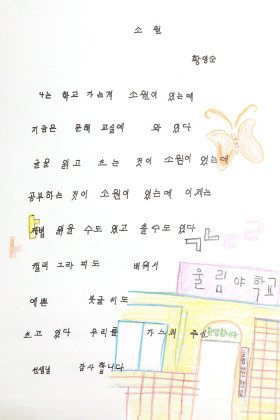 소 원
황영순
나는 학교 가는게 소원이 있는데
지금은 문해 교실에 와 있다
글을 읽고 쓰는 것이 소원이 있는데
공부하는 것이 소원이 있는데 이제는
제법 읽을 수도 있고 쓸수도 있다
캘리 그라 피도 배워서
예쁜 붓글씨도
쓰고 있다 우리를 가느쳐 주신
선생님 감사 합니다
울림야학교
환영합니다
ㄱㄴ
ㄷㄹ